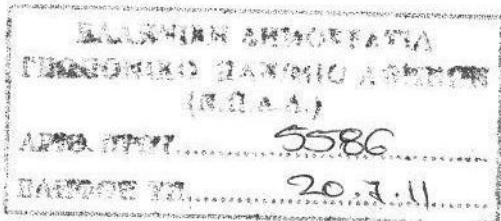 ΕΛΛΗΝΙΚΗ ΔΗΜΟΚΡΑΤΙΑ
ΓΕΩΠΟΝΙΚΟ ΠΑΝ/ΜΙΟ ΑΘΗΝΩΝ
ΑΡΙΘ. ΠΡΩΤ. 5586
20.7.11